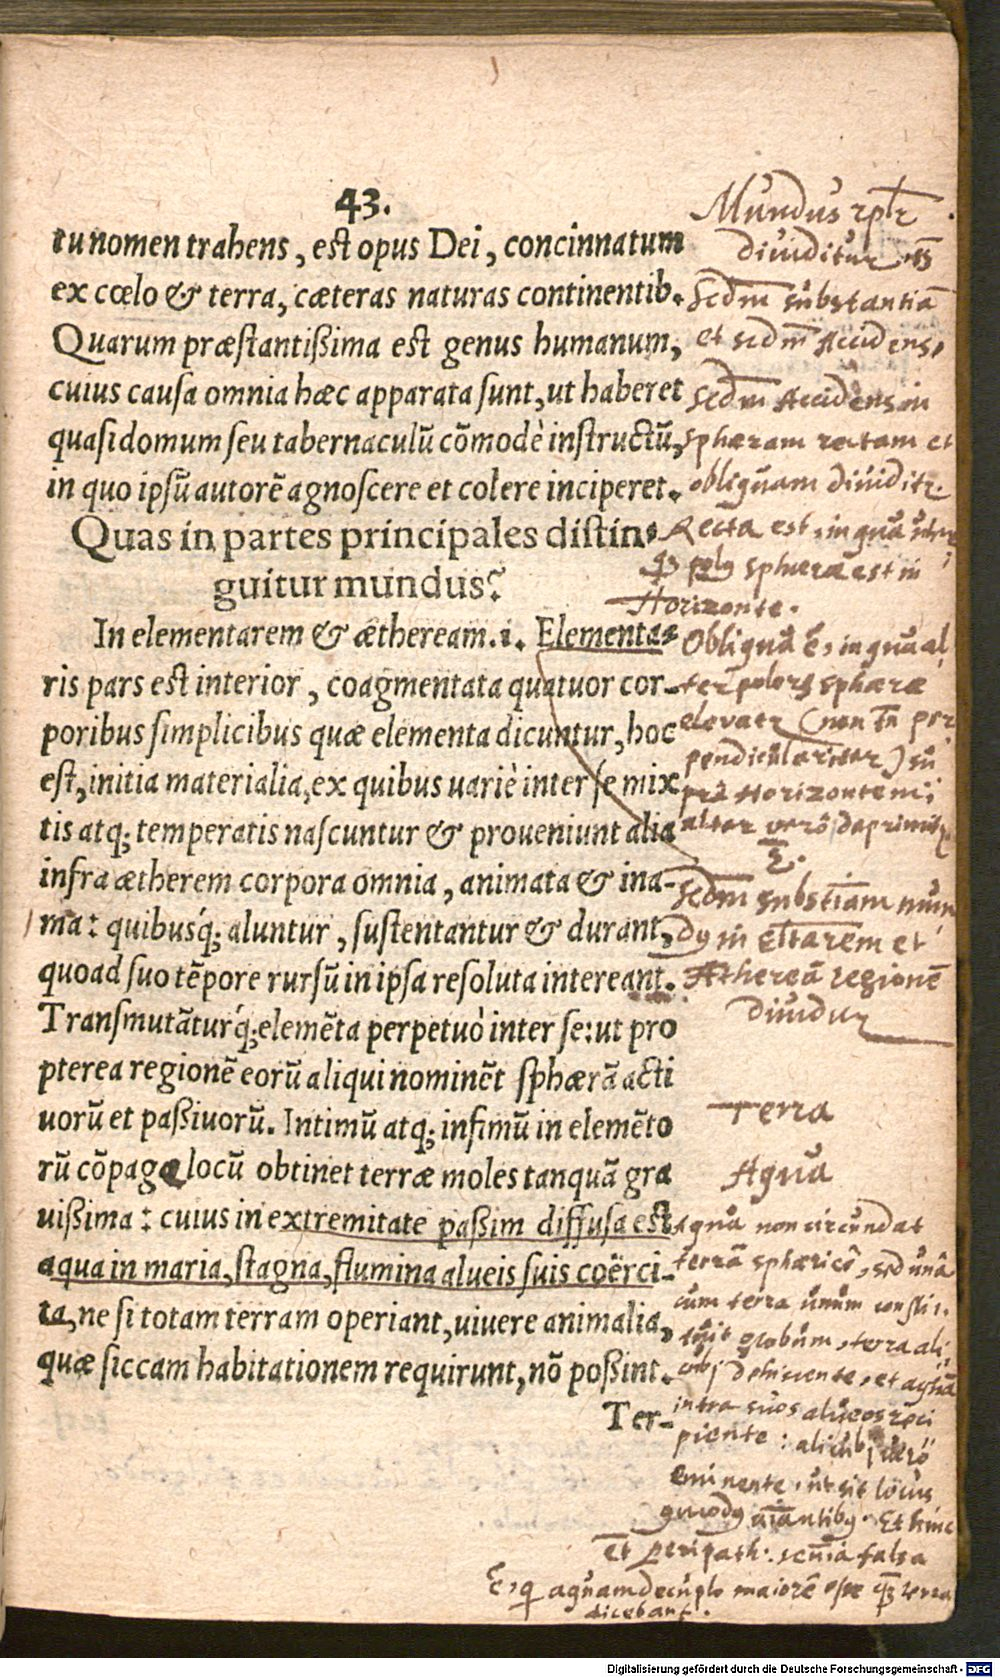 43.
tu nomen trahens, est opus Dei, concinnatum
ex cœlo & terra, cæteras naturas continentib.
Quarum præstantißima est genus humanum,
cuius causa omnia hæc apparata sunt, ut haberet
quasi domum seu tabernaculū cōmodè instructū,
in quo ipsū autorē agnoscere et colere inciperet.
Quas in partes principales distin-
guitur mundus?
In elementarem & ætheream. i. Elementa-
ris pars est interior, coagmentata quatuor cor-
poribus simplicibus quæ elementa dicuntur, hoc
est, initia materialia, ex quibus uariè inter se mix
tis atq; temperatis nascuntur & proueniunt alia
infra ætherem corpora omnia, animata & ina-
ma: quibusq́; aluntur, sustentantur & durant,
quoad suo tēpore rursū in ipsa resoluta intereant.
Transmutāturq́; elemēta perpetuò inter se: ut pro
pterea regionē eorū aliqui nominēt sphærā acti
uorū et paßiuorū. Intimū atq; infimū in elemēto
rū cōpage locū obtinet terræ moles tanquā gra
uißima: cuius in extremitate paßim diffusa est
aqua in maria, stagna, flumina alueis suis coërci-
ta, ne si totam terram operiant, uiuere animalia,
quæ siccam habitationem requirunt, nō poßint.
Ter-
Mundus
diuiditur
Secdm substantiā
et secdm Accidens,
Secdm Accidens in
sphæram rectam et
obliquam diuiditr.
Recta est, in qua
sphæræ est in
Horizonte.
Obliqua ē, in qua al
ter polorū sphæræ
eleuatr (non tn per
pendiculariter) su
pra Horizontem;
alter vero deprimitr
Secdm substiam mun
dū in eltarem et
Atheream regionē
diuidūt
Terra
Aqua
Aqua non circundat
terrā sphæricè, sed unā
cum terra unum consti-
tuit globum, terra ali
deficiente, et aquā
intra suos alueos reci
piente: vero
eminente, ut sit locus
Et hinc
et peripath. falsa
ē, aquam decuplo maiorē esse terra
dicebant.
Digitalisierung gefördert durch die Deutsche Forschungsgemeinschaft - DFG